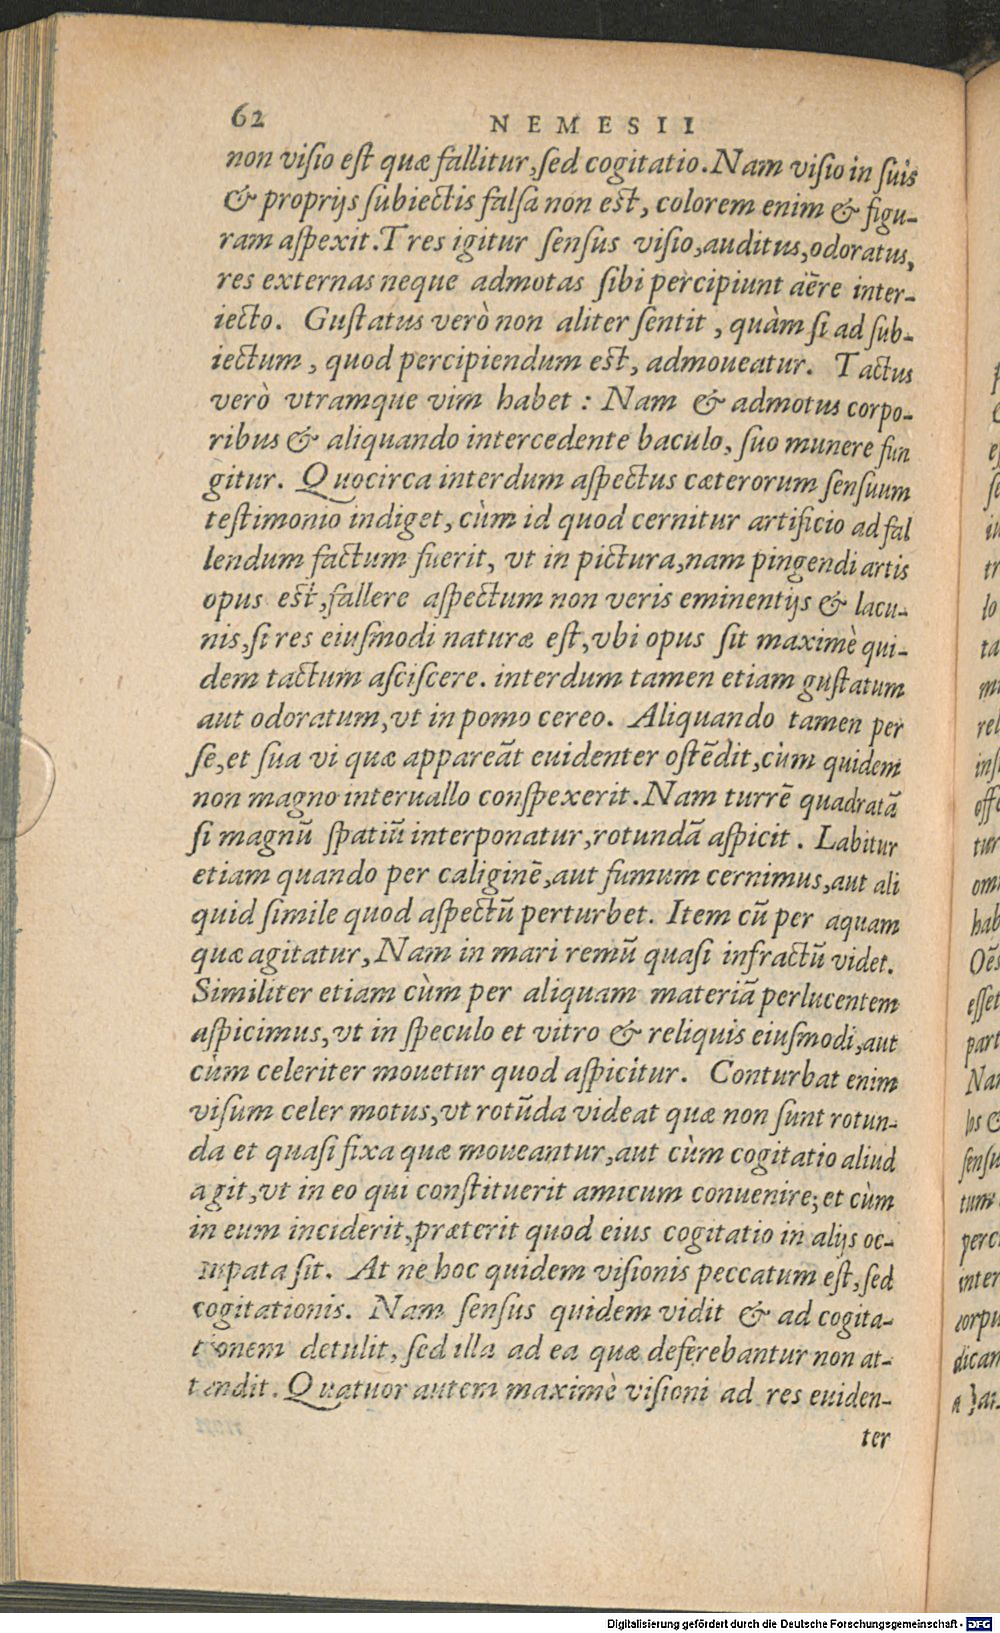 62 NEMESII
non visio est quæ fallitur, sed cogitatio. Nam visio in suis
& proprijs subiectis falsa non est, colorem enim & figu-
ram aspexit. Tres igitur sensus visio, auditus, odoratus,
res externas neque admotas sibi percipiunt aëre inter-
iecto. Gustatus verò non aliter sentit, quàm si ad sub-
iectum, quod percipiendum est, admoueatur. Tactus
verò vtramque vim habet: Nam & admotus corpo-
ribus & aliquando intercedente baculo, suo munere fun
gitur. Quocirca interdum aspectus cæterorum sensuum
testimonio indiget, cùm id quod cernitur artificio ad fal
lendum factum fuerit, vt in pictura, nam pingendi artis
opus est, fallere aspectum non veris eminentijs & lacu-
nis, si res eiusmodi naturæ est, vbi opus sit maximè qui-
dem tactum asciscere. interdum tamen etiam gustatum
aut odoratum, vt in pomo cereo. Aliquando tamen per
se, et sua vi quæ appareāt euidenter ostēdit, cùm quidem
non magno interuallo conspexerit. Nam turrē quadratā
si magnū spatiū interponatur, rotundā aspicit. Labitur
etiam quando per caliginē, aut fumum cernimus, aut ali
quid simile quod aspectū perturbet. Item cū per aquam
quæ agitatur, Nam in mari remū quasi infractū videt.
Similiter etiam cùm per aliquam materiā perlucentem
aspicimus, vt in speculo et vitro & reliquis eiusmodi, aut
cùm celeriter mouetur quod aspicitur. Conturbat enim
visum celer motus, vt rotūda videat quæ non sunt rotun-
da et quasi fixa quæ moueantur, aut cùm cogitatio aliud
agit, vt in eo qui constituerit amicum conuenire; et cùm
in eum inciderit, præterit quod eius cogitatio in alijs oc-
cupata sit. At ne hoc quidem visionis peccatum est, sed
cogitationis. Nam sensus quidem vidit & ad cogita-
tionem detulit, sed illa ad ea quæ deferebantur non at-
tendit. Quatuor autem maximè visioni ad res euiden-
ter
Digitalisierung gefördert durch die Deutsche Forschungsgemeinschaft - DFG